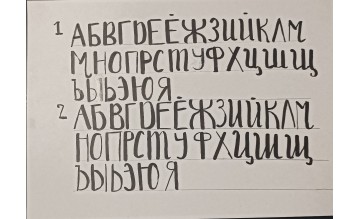 1 АБВГDЕЁЖЗИЙКЛМ
МНОПРСТУФХЦШЩ
ЪЫЬЭЮЯ
2 АБВГDЕЁЖЗИЙКЛМ
НОПРСТУФХЦШЩ
ЪЫЬЭЮЯ